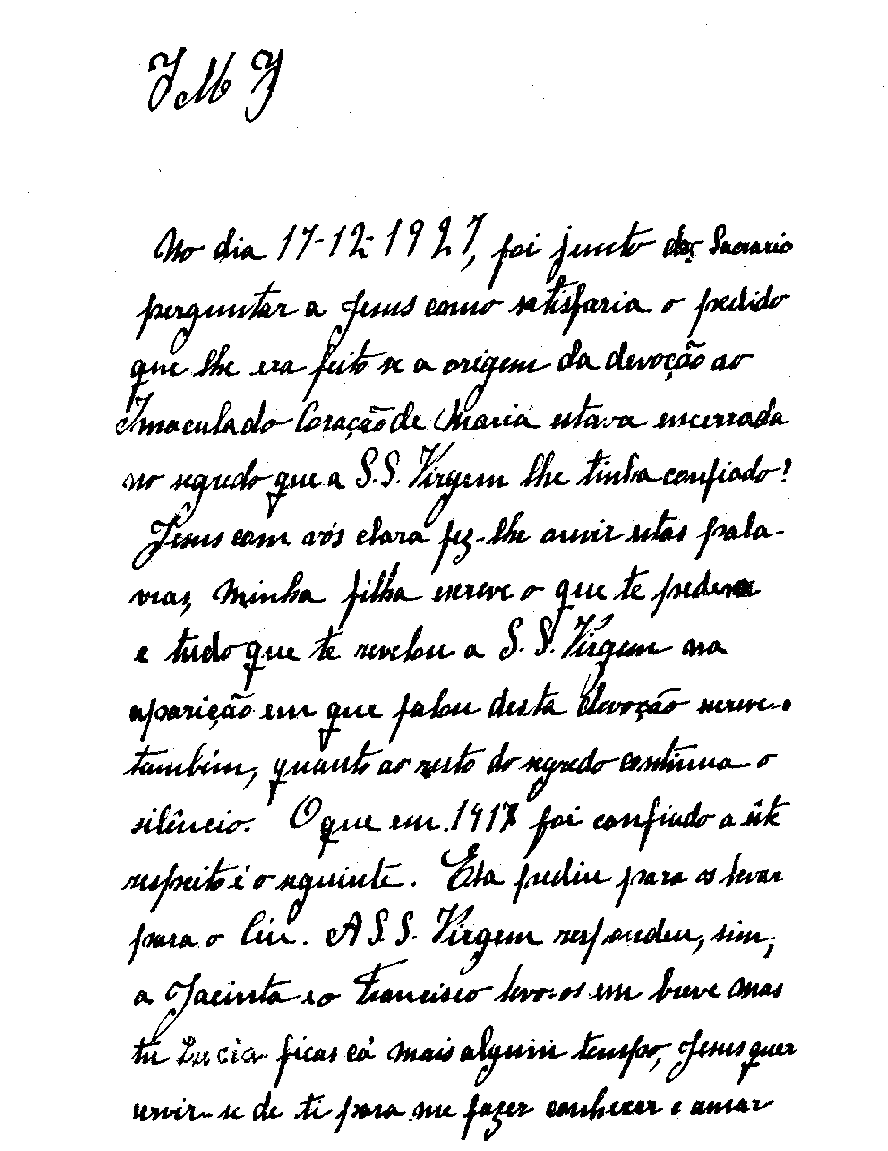 J M J
No dia 17-12-1927, foi junto do Sacrario
perguntar a Jesus como satisfaria o pedido
que lhe era feito se a origem da devoção ao
Imaculado Coração de Maria estava encerrada
no segredo que a S.S. Virgem lhe tinha confiado?
Jesus com vós clara fez-lhe ouvir estas pala-
vras, minha filha escreve o que te pedem
e tudo que te revelou a S.S. Virgem na
aparição em que falou desta devoção escreve-o
também, quanto ao resto do segredo continua o
silêncio. O que em 1917 foi confiado a êste
respeito é o seguinte. Ela pediu para os levar
para o Céu. A S.S. Virgem respondeu, sim,
a Jacinta e o Francisco levo-os em breve mas
tu Lucia ficas cá mais algum tempo, Jesus quer
servir-se de ti para me fazer conhecer e amar